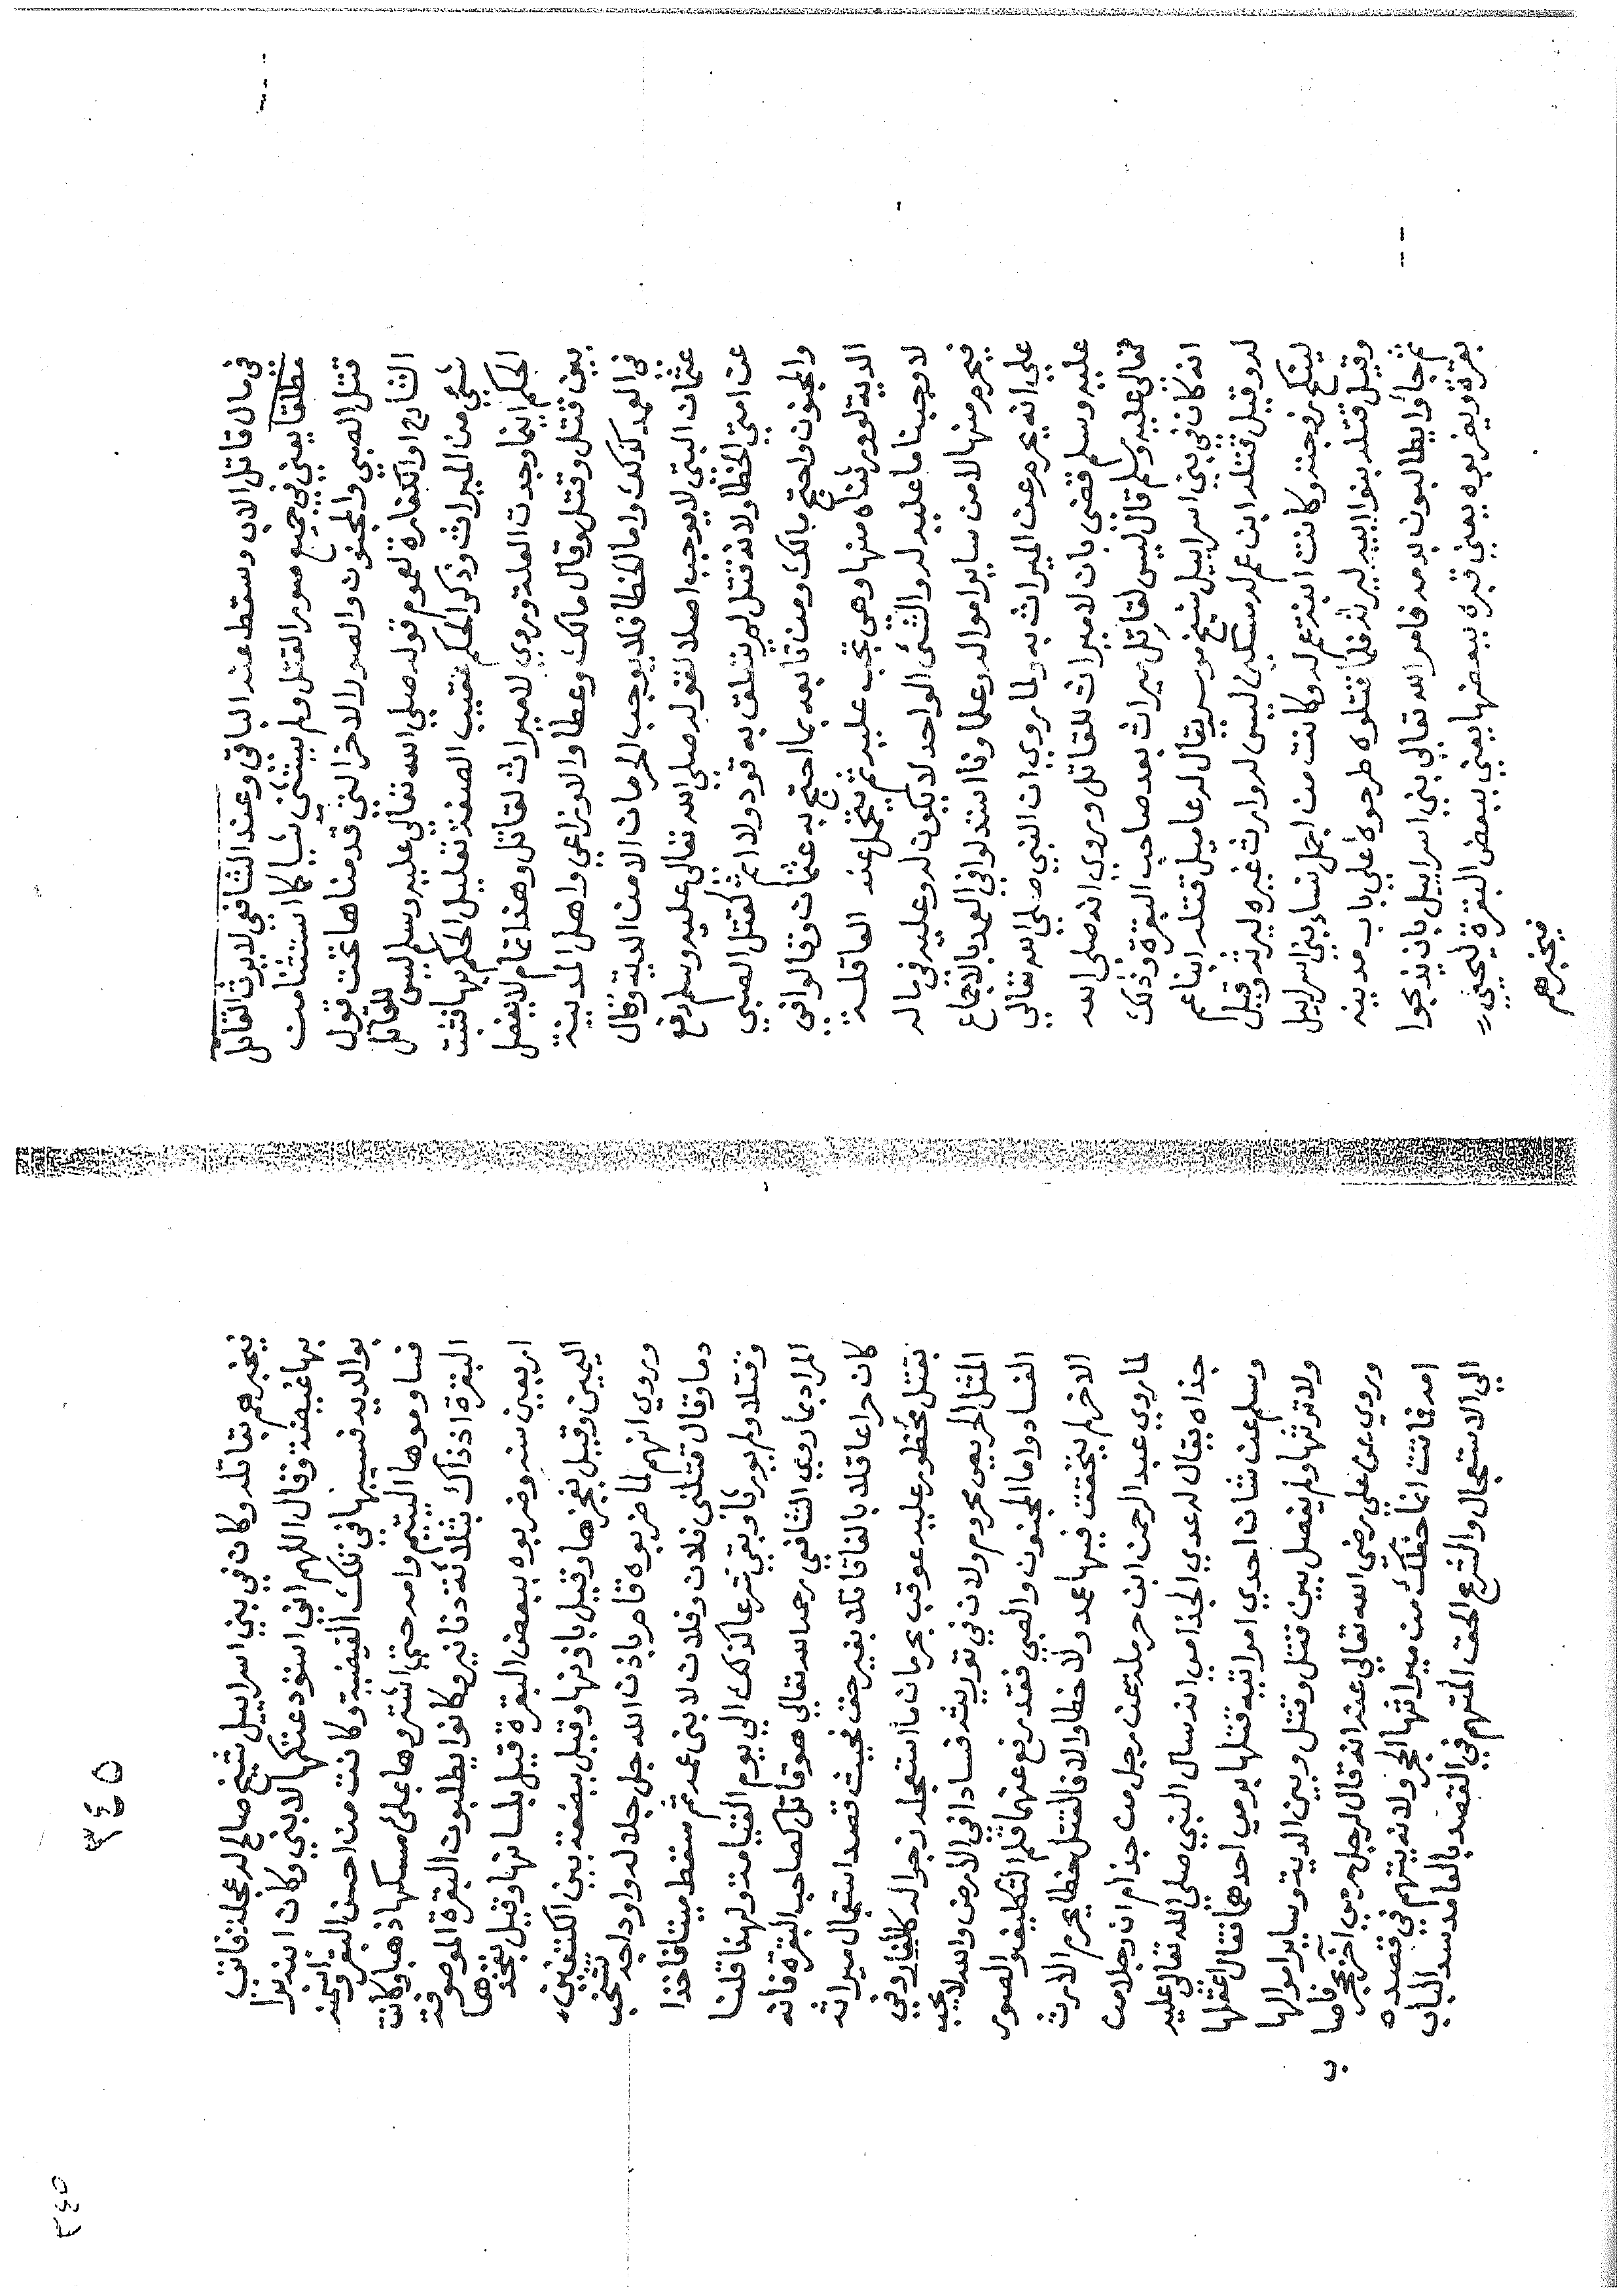 في مال قاتل الاب وسقط عند الباقي وعند الشافعي لا يرث القاتل
مطلقا يعني في جميع صور القتل ولم يستثنى شيا كما استثنا من
قتل الصبي والمجنون والصور الاخر التي قدمناها تحت قول
الشارع او الكفارة لعموم قوله صلي الله تعالي عليه وسلم ليس للقاتل
شيئ من الميراث وذكر الحكم عقيب الصفة تعليل الحكم بها فثبت
الحكم اينما وجدت العلة وروي لا ميراث لقاتل وهذا تمام لا يفصل
بين قتل وقتل وقال مالك وعطا والاوزاعي واهل المدينة
في العمد كذلك واما الخطا فلا يوجب الحرمان الا من الدية وقال
عثمان البتي لا يوجب اصلا لقوله صلي الله تعالي عليه وسلم رفع
عن امتي الخطا ولانه قتل لم يتعلق به قود ولا اثم كقتل الصبي
والمجنون واحتج مالك ومن تابعه بما احتج به عثمان وقالوا في
الدية لو ورثناه منها وهي تجب عليه ثم تتحمل عنه العاقلة
لاوجبنا ما عليه له والشئ الواحد لا يكون له وعليه في حاله
فيحرم منها لا من ساير امواله وعلماونا استدلوا في العمد بالاجماع
علي انه يحرم عن الميراث به ولما روي ان النبي صلي الله تعالي
عليه وسلم قضي بان لا ميراث للقاتل وروي انه صلي الله
تعالي عليه وسلم قال ليس لقاتل ميراث بعد صاحب البقرة وذلك
انه كان في بني اسراييل شيخ موسر يقال له عاميل قتله ابنا عم
له وقيل قتله ابن عم له مسكين ليس له وارث غيره ليرثه وقيل
لينكح زوجته وكانت ابنة عم له وكانت من اجمل نساء بني اسراييل
وقيل قتله بنوا اخيه ليرثه فلما قتلوه طرحوه علي باب مدينه
ثم جاوا يطالبون بدمه فامر الله تعالي بني اسراييل بان يذبحوا
بقرة ويضربوه ببعضها يعني ببعض البقرة ليحيي
فيخبرهم
٣٤٥
فيخبرهم بقاتله وكان في بني اسراييل شيخ صالح له عجلة فاتي
بها غيضة وقال اللهم اني استودعتكها لابني وكان ابنه برا
بوالديه فسيبها في تلك الغيضة وكانت من احسن البقر واسمنه
فساوموها اليتيم وامه حتي اشتروها بملئ مسكها ذهبا وكانت
البقرة اذ ذاك بثلاثة دنانير وكانوا يطلبون البقرة الموصوفة
اربعين سنه وضربوه ببعض البقرة قيل بلسانها وقيل بفخذها
اليمين وقيل بعجزها وقيل باذنها وقيل ببضعة بين الكتفين
وروي انهم لما ضربوه قام باذن الله جل جلاله واوداجه تشخب
دما وقال قتلني فلان وفلان لابني عمه ثم سقط ميتا فاخذا
وقتلا ولم يورثا وبقي شرعا كذلك الي يوم القيامة ولهذا قلنا
المراد بما روي الشافعي رحمه الله تعالي هو قاتل كصاحب البقرة فانه
كان حرا عاقلا بالغا قاتلا بغير حق بحيث قصد استعجال ميراثه
بقتل محظور عليه عوقب بحرمان ما استعجله زجرا له كالمار وفي
المثل الحريص محروم ولان في توريثه فسادا في الارض والله لا يحب
الفساد واما المجنون والصبي فقد رفع عنهما قلم التكليف والصور
الاخر لم يتحقق فيها عمد ولا خطا والا فالقتل خطا يحرم الارث
لما روي عبد الرحمن ابن حرملة عن رجل من جذام ان رجلا من
جذاه يقال له عدي الجذامي انه سال النبي صلي الله تعالي عليه
وسلم عن شان احدي امراتيه قتلها برمي احدهما فقال اعقلها
ولا ترثها ولم يفصل بين قتل وقتل وبين الدية وساير اموالها
وروي عن علي رضي الله تعالي عنه انه قال لرجل رمي آخر بحجر فاصاب
امه فماتت انما حظك من ميراثها الحجر ولانه يتهم في قصده
الي الاستعجال والشرع الحق المتهم في القصد بالعامد سد الباب
٣٤٥